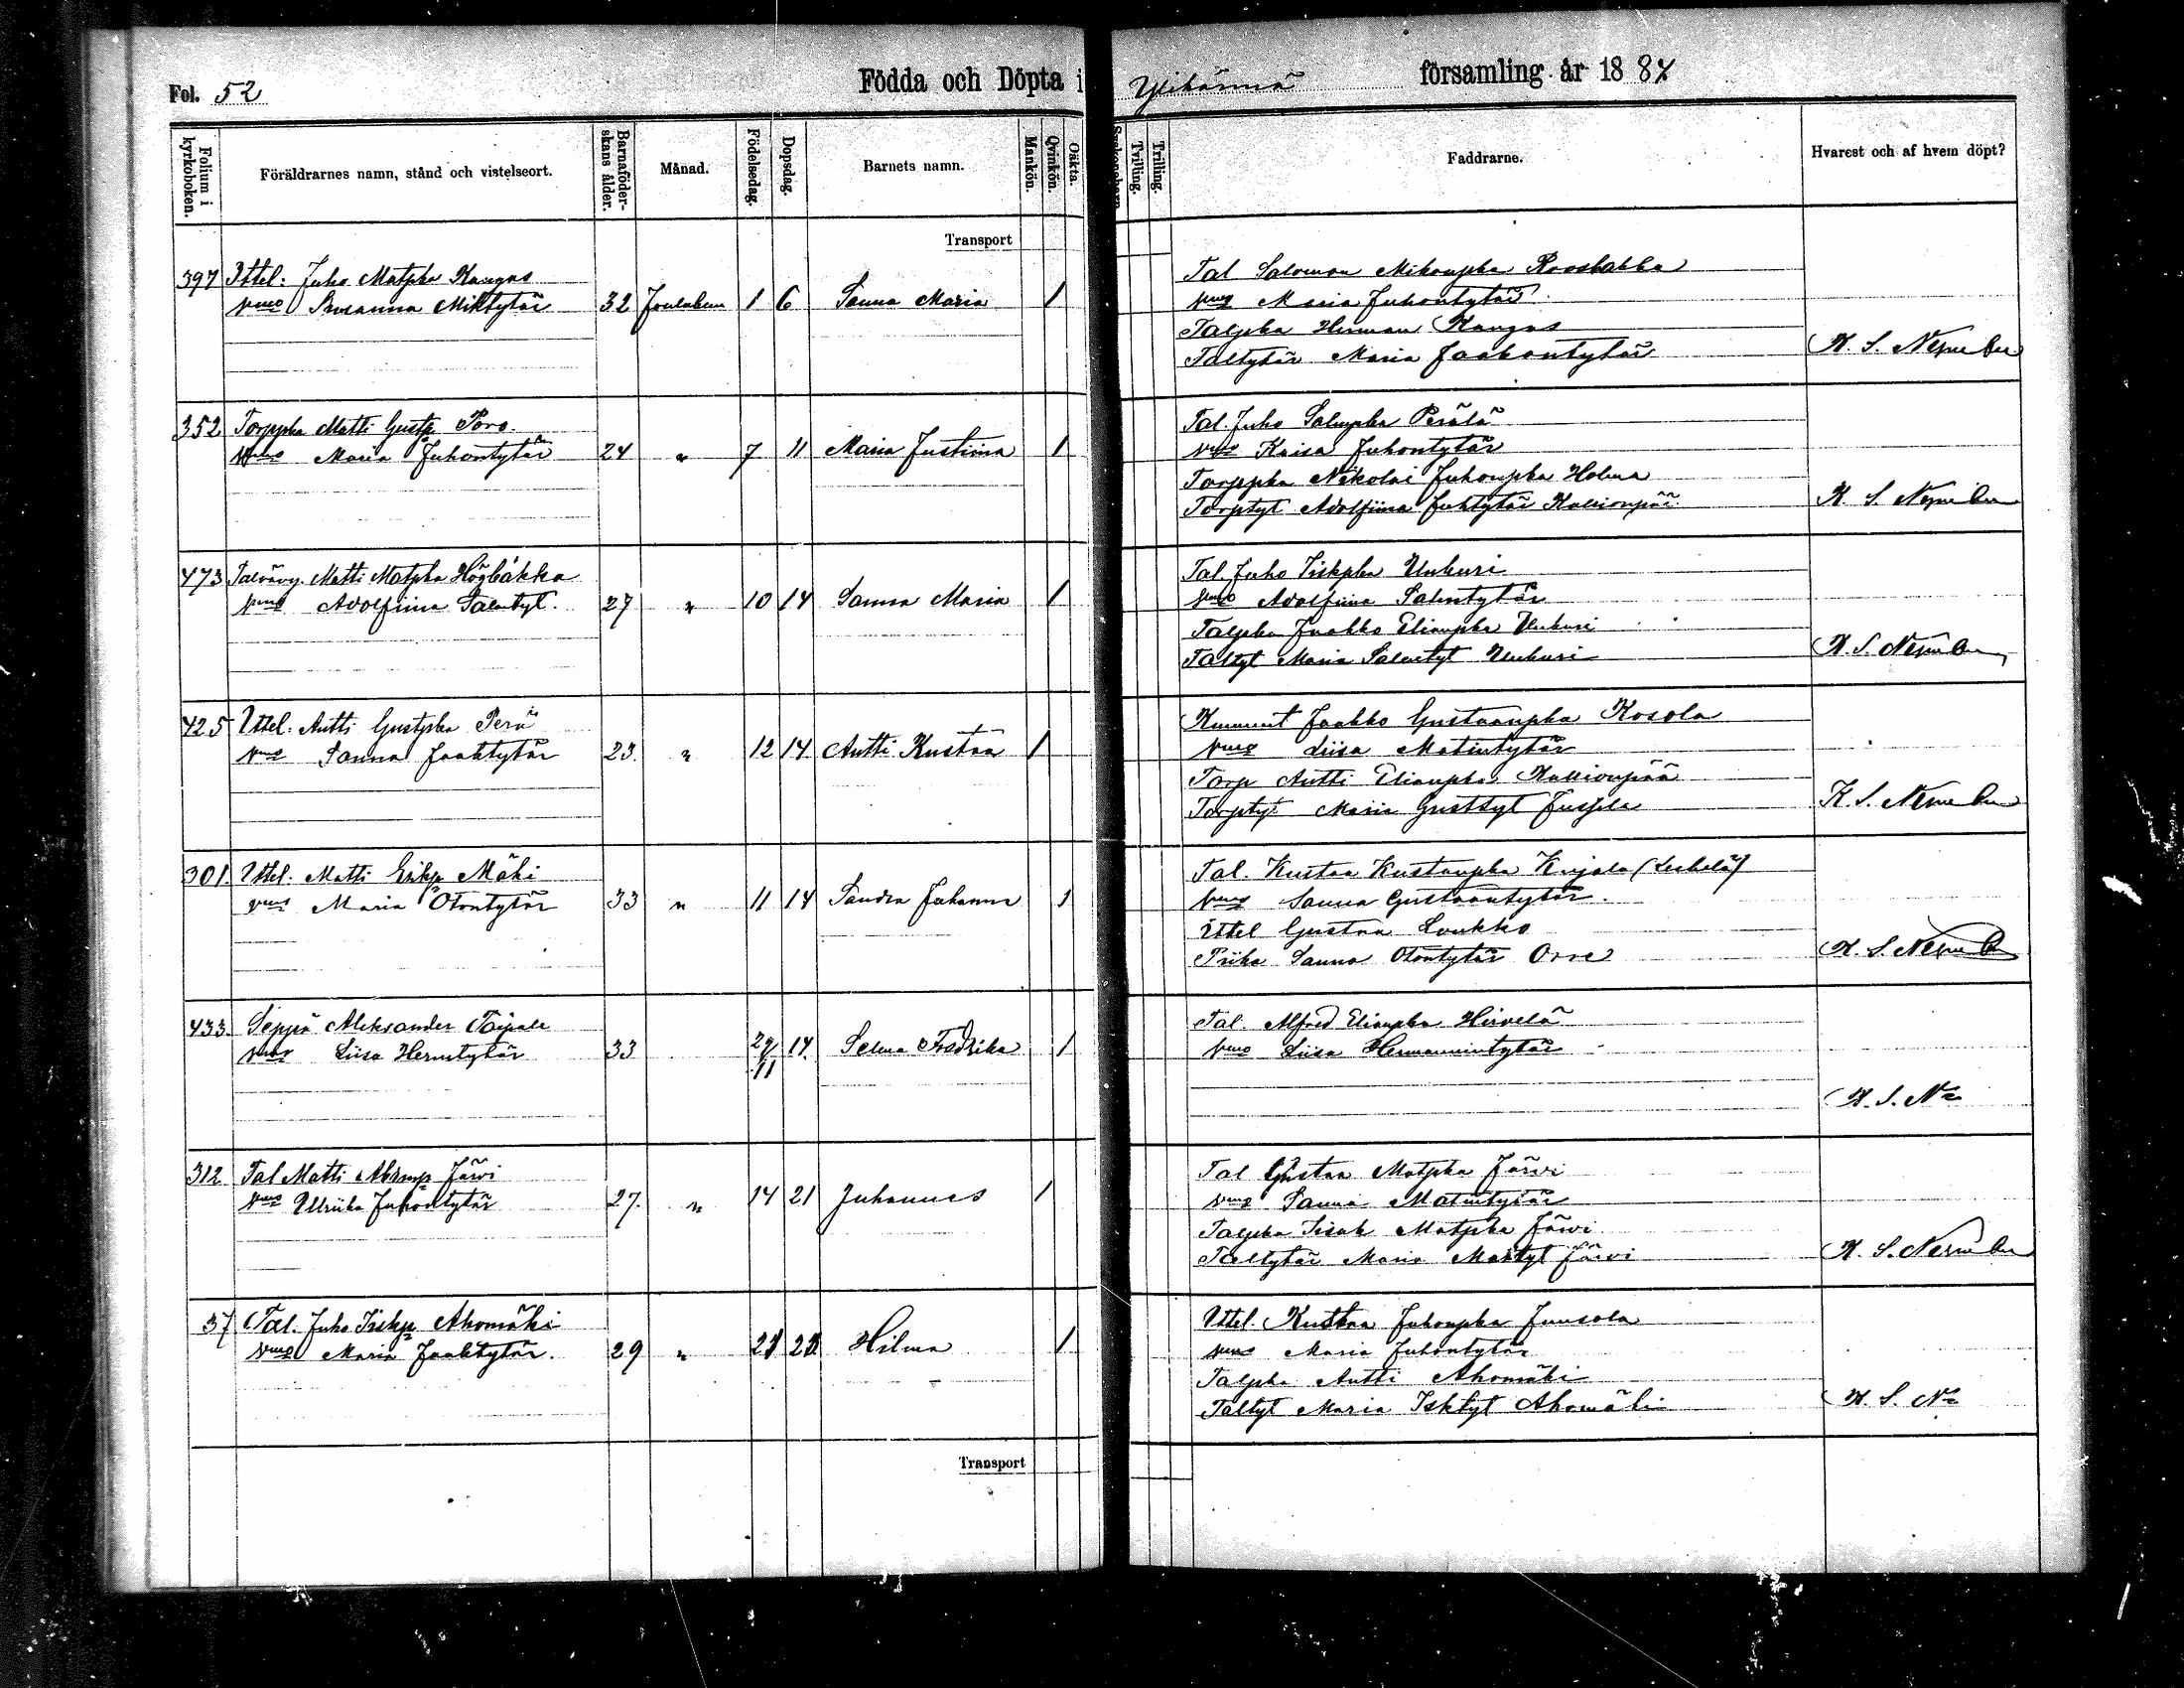 Fol. 52 Födda och Döpta i Ylihärmä församling år 1884
Folium i kyrkoboken. Föräldrarnes namn, stånd och vistelseort. Barnaföderskans ålder. Månad. Födelsedag. Dopsdag. Barnets namn. Mankön. Qvinkön. Oäkta. Trilling. Trilling. Faddrarne. Hvarest och af hvem döpt?
Transport
397 Ittel. Juho Matpka Kangas
vmo Susanna Miktytär 32 Joulukuu 1 6 Sanna Maria 1
Tal Salomon Mikonpka
vmo Maria Juhontytär
Talpka Herman Kangas
Taltytär Maria Jaakontytär K. S.
352 Torppka Matti Gustp Poro.
vmo Maria Juhontytär 24 " 7 11 Maria Justiina 1
Tal. Juho Salmpka Perälä
vmo Kaisa Juhontytär
Torppka Nikolai Juhonpka Holma
Torptyt Adolfiina Juhtytär Kallionpää K. S.
473 Talvävy. Matti Matpka Högbakka
vmo Adolfiina Salmtyt. 27 " 10 14 Sanna Maria 1
Tal. Juho Iiskpka Unkuri
vmo Adolfiina Salmtytär
Talpka Jaakko Elianpka Unkuri
Taltyt Maria Salmtyt Unkuri K. S.
425 Ittel. Antti Gustpka Perä
vmo Sanna Jaaktytär 23. " 12 14. Antti Kustaa 1
Jaakko Gustaanpka Kosola
vmo Liisa Matintytär
Torp Antti Elianpka Kallionpää
Torptyt Maria Gusttyt K. S.
301. Ittel. Matti Erikp Mäki
vmo Maria Otontytär 33 " 11 14 Sandra Johanna 1
Tal. Kustaa Kustaapka Kujala
vmo Sanna Gustaantytär.
Ittel Gustaa Luukko
Piika Sanna Otontytär Orre K. S.
433. Seppä Aleksander Taipale
vmo Liisa Hermtytär 33 29/11 14. Selma Fredrika 1
Tal. Alfred Elianpka Hirvelä
vmo Liisa Hermannintytär
K. S. N
312 Tal Matti Abramp Järvi
vmo Ulriika Juhontytär 27. " 14 21 Juhannes 1
Tal Gustaa Matpka Järvi
vmo Sanna Matintytär
Talpka Iisak Matpka Järvi
Taltytär Maria Mattyt Järvi K. S.
37 Tal. Juho Iiskp Ahomäki
vmo Maria Jaaktytär. 29 " 21 Hilma 1
Ittel. Kustaa Juhonpka Juusola
vmo Maria Juhontytär
Talpka Antti Ahomäki
Taltyt Maria Isktyt Ahomäki K. S. N
Transport